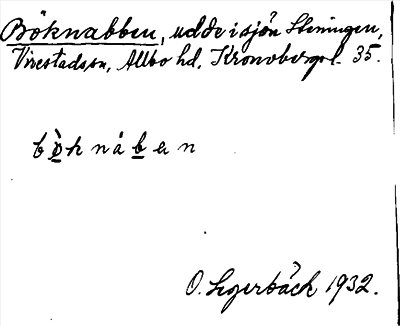 Böknabben, udde i sjön Steningen,
Virestadssn, Allbo hd, Kronobergs l. 35.
bö̀knåben
O. Segerbäck 1932.